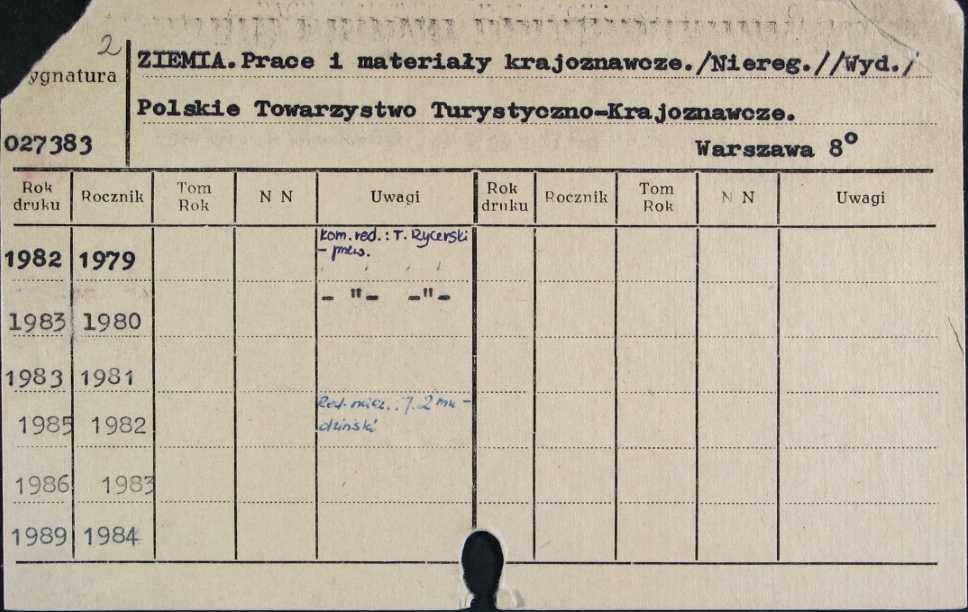 2
ygnatura
ZIEMIA.Prace i materiały krajoznawcze./Niereg.//Wyd./
Polskie Towarzystwo Turystyczno-Krajoznawcze.
027383
Warszawa 8º
Rok druku Rocznik Tom Rok N N Uwagi Rok druku Rocznik Tom Rok N N Uwagi
kom. red.: T. Rycerski
1982 1979 - prew.
- "- -"-
1983 1980
1983 1981
Red. nacz.: J. Żmu-
1985 1982 dziński
1986 1983
1989 1984